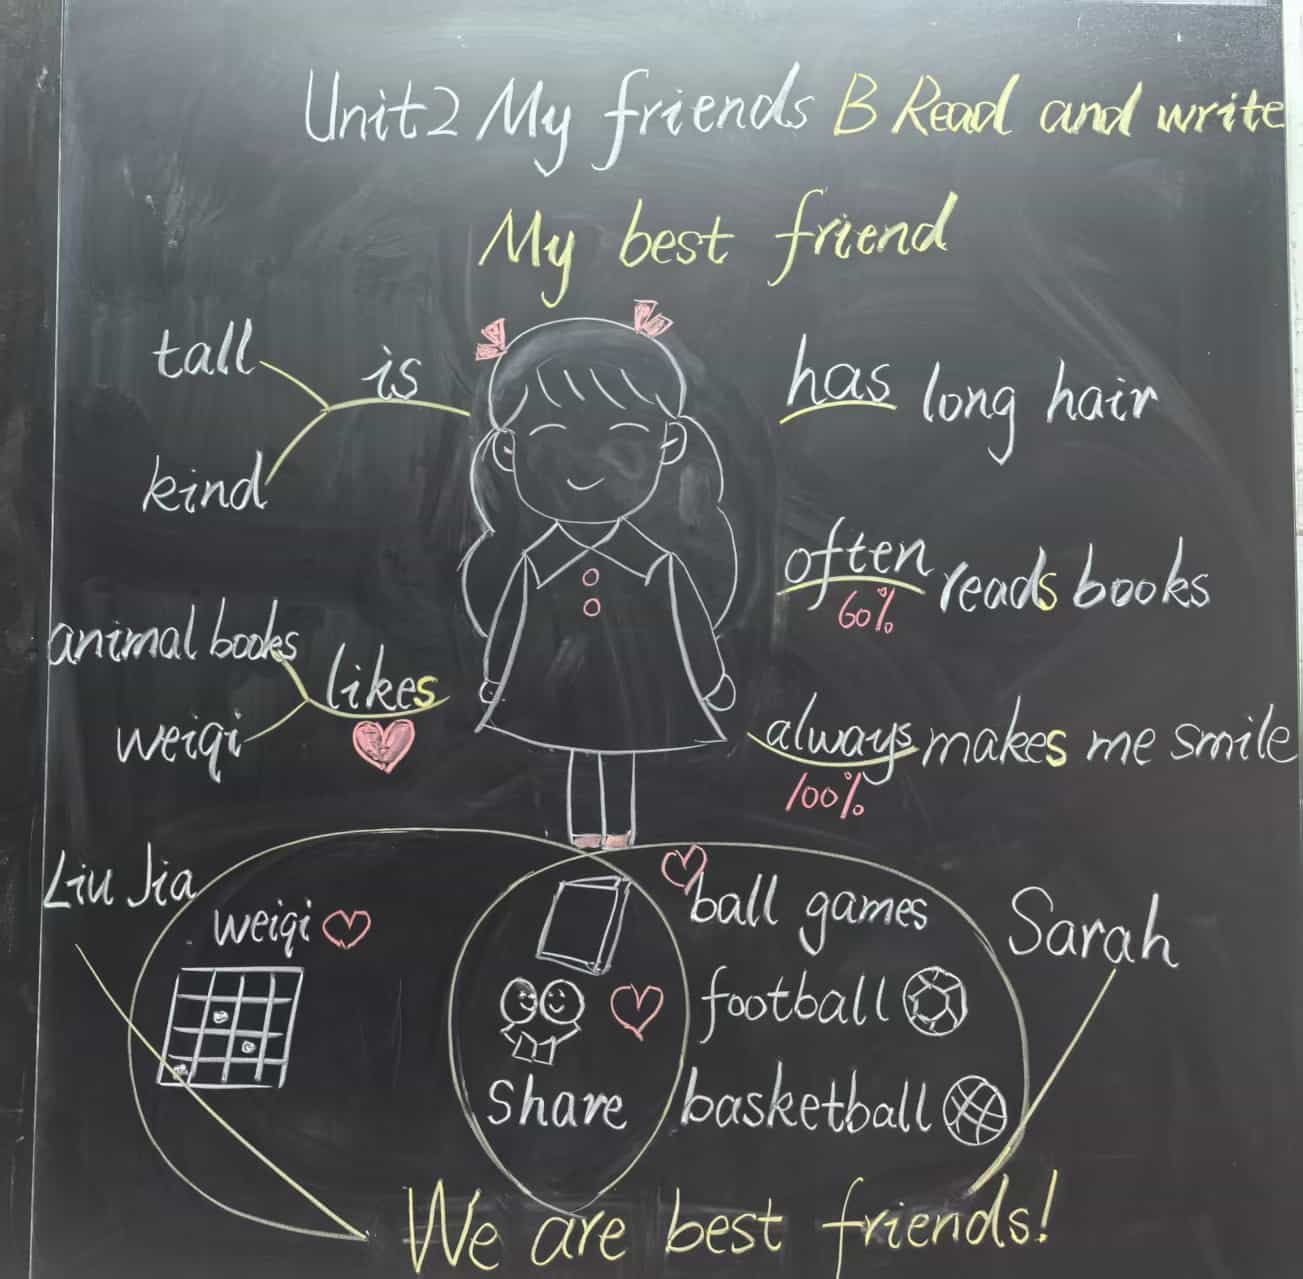 Unit2 My friends B Read and write
My best friend
tall
is
kind
has long hair
often reads books
60%
animal books
likes
weiqi
always makes me smile
100%
Liu Jia
weiqi
ball games
Sarah
football
share
basketball
We are best friends!